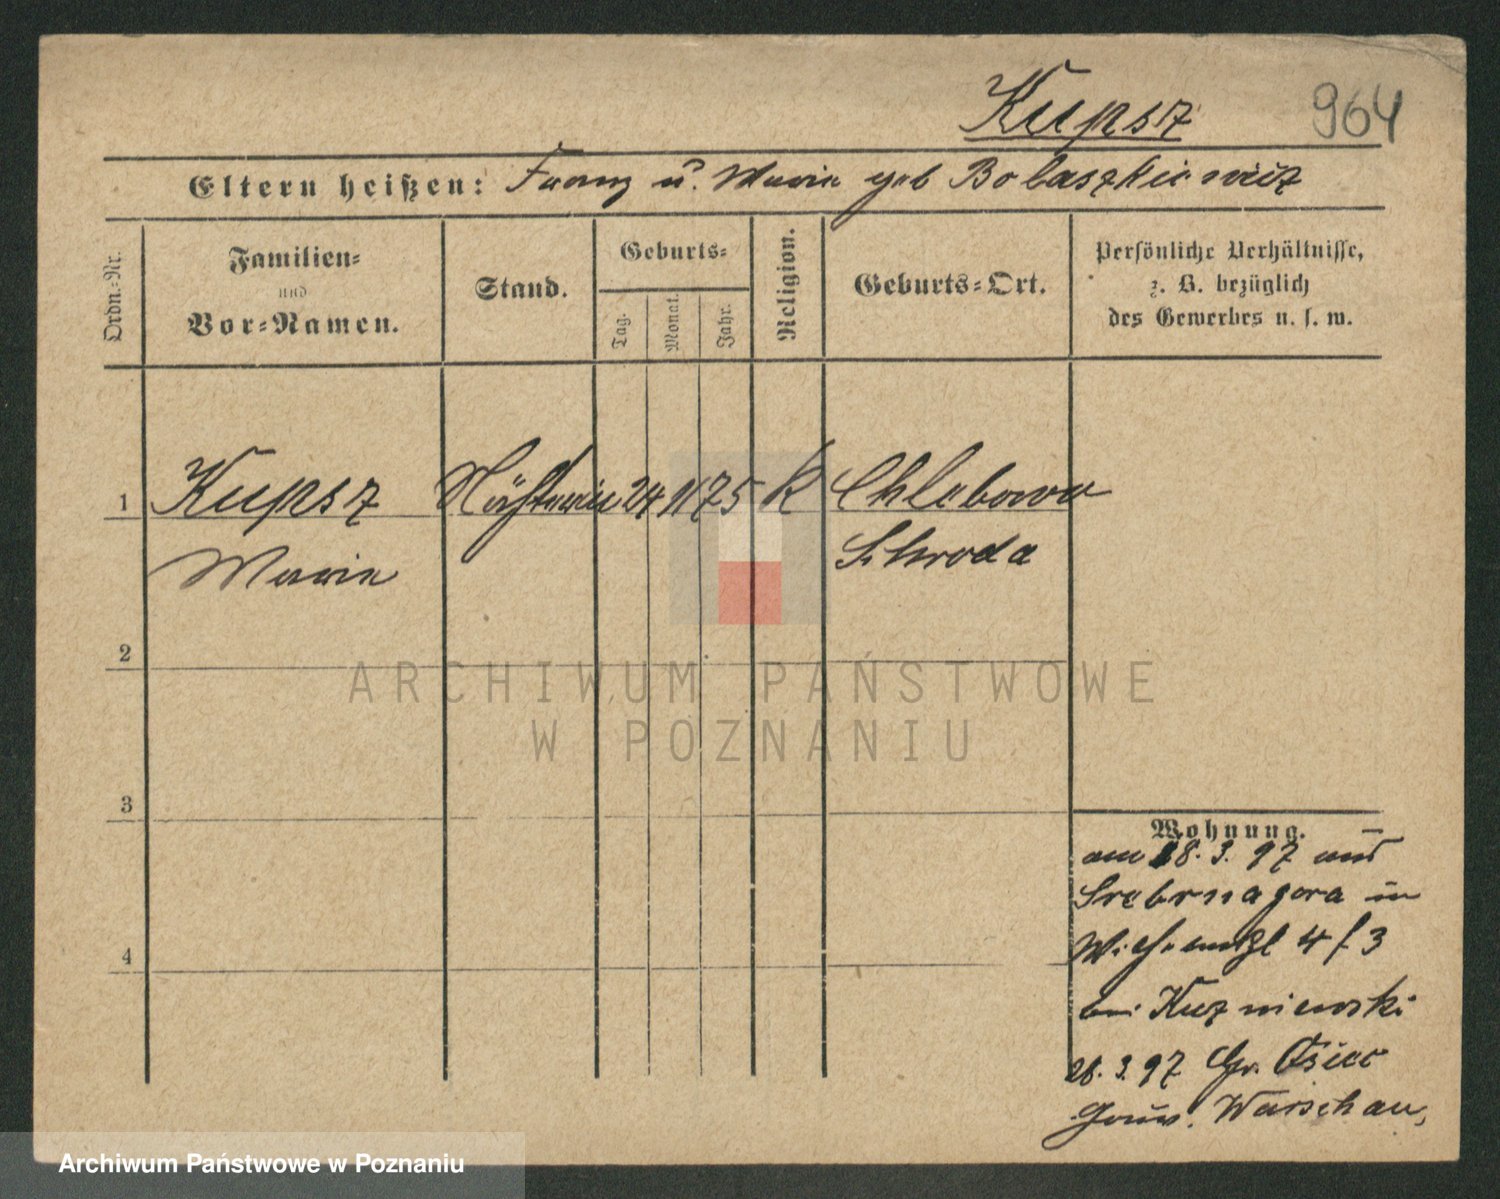 Kupsz 964
Eltern heißen: Franz u. Maria geb Bolaszkiewicz
Ordn.-Nr.
Familien-
und
Vor-Namen.
Stand.
Geburts-
Tag.
Monat.
Jahr.
Religion.
Geburts-Ort.
Persönliche Verhältnisse,
z. B. bezüglich
des Gewerbes u. s. w.
1 Kupsz Nähterin 24 11 75 k Chlebowo
Maria Schroda
2
3
4
Wohnung.
am 18. 3. 97 aus
Srebrnagora in
4 f 3
bei Kuzniewski
28. 3. 97 Gr. Osiec
Gouv. Warschau,
ARCHIWUM PAŃSTWOWE
W POZNANIU
Archiwum Państwowe w Poznaniu